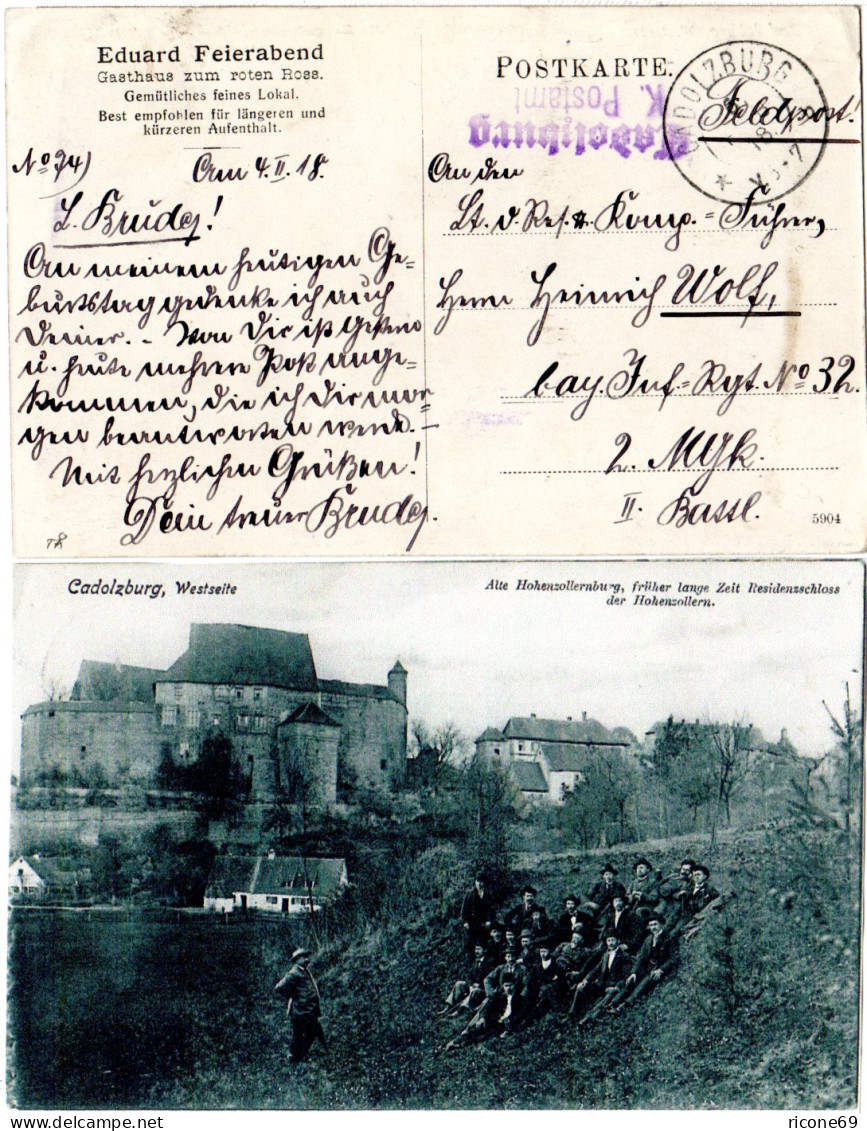 Eduard Feierabend
Gasthaus zum roten Ross.
Gemütliches feines Lokal.
Best empfohlen für längeren und
kürzeren Aufenthalt.
No 74)
Am 4.II.18.
L. Bruder!
An meinem heutigen Ge-
burtstag gedenke ich auch
Deiner. - Von Dir ist gestern
u. heute mehrere Post ange-
kommen, die ich Dir mor-
gen beantworten werde. -
Mit herzlichen Grüßen!
Dein treuer Bruder.
POSTKARTE.
K. Postamt
Kadolzburg
CADOLZBURG
Feldpost!
An den
Lt. d. Res. Komp.=Führer,
Herrn Heinrich Wolf,
bay. Inf.=Rgt. No 32.
2. MGK.
II. Batl.
5904
Cadolzburg, Westseite
Alte Hohenzollernburg, früher lange Zeit Residenzschloss
der Hohenzollern.
ricone69